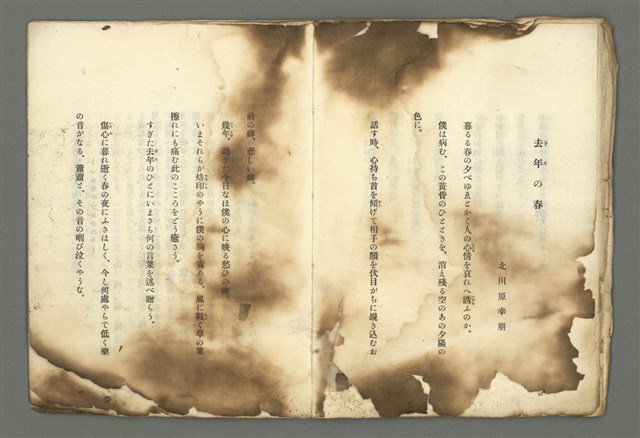 去年の春
北川原幸朋
暮るる春の夕べゆゑとかく人の心情を哀れへ誘ふのか。
僕は病む、この黄昏のひとときを、消え殘る空のあの夕陽の
色に。
話す時、心持ち首を傾げて相手の顔を伏目がちに覗き込むお
前の癖、悲しい癖。
幾年、過ぎた今日なほ僕の心に映る愁ひの
いまそれらが烙印のやうに僕の胸を る、風に戰く草の葉
擦れにも痛む此のこころをどう癒さう。
すぎた去年のひとにいまさら何の言葉を述べ贈らう。
傷心に暮れ逝く春の夜にふさはしく、今し何處やらで低く樂
の音がなる、蕭蕭と、その音の咽び泣くやうな。